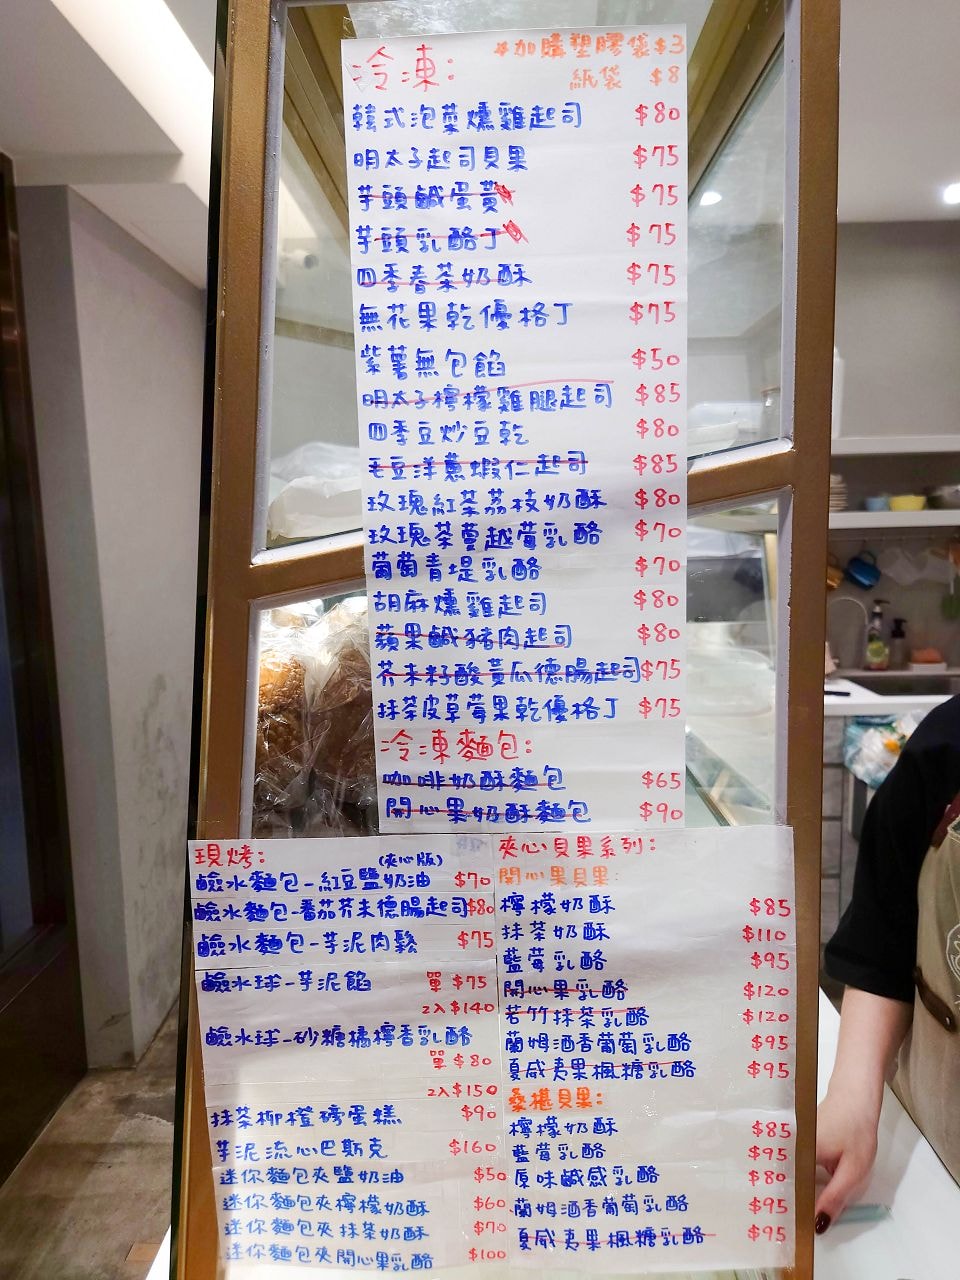 冷凍：
*加購塑膠袋$3
紙袋 $8
韓式泡菜燻雞起司 $80
明太子起司貝果 $75
芋頭鹹蛋黃 $75
芋頭乳酪丁 $75
四季春茶奶酥 $75
無花果乾優格丁 $75
紫薯無包餡 $50
明太子檸檬雞腿起司 $85
四季豆炒豆乾 $80
毛豆洋蔥蝦仁起司 $85
玫瑰紅茶荔枝奶酥 $80
玫瑰茶蔓越莓乳酪 $70
葡萄青堤乳酪 $70
胡麻燻雞起司 $80
蘋果鹹豬肉起司 $80
芥末籽酸黃瓜德腸起司 $75
抹茶皮草莓果乾優格丁 $75
冷凍麵包：
咖啡奶酥麵包 $65
開心果奶酥麵包 $90
現烤：
(夾心版)
鹼水麵包-紅豆鹽奶油 $70
鹼水麵包-番茄芥末德腸起司$80
鹼水麵包-芋泥肉鬆 $75
鹼水球-芋泥餡 單 $75
2入$140
鹼水球-砂糖橘檸香乳酪
單 $80
2入$150
抹茶柳橙磅蛋糕 $90
芋泥流心巴斯克 $160
迷你麵包夾鹽奶油 $50
迷你麵包夾檸檬奶酥 $60
迷你麵包夾抹茶奶酥 $70
迷你麵包夾開心果乳酪 $100
夾心貝果系列：
開心果貝果：
檸檬奶酥 $85
抹茶奶酥 $110
藍莓乳酪 $95
開心果乳酪 $120
若竹抹茶乳酪 $120
蘭姆酒香葡萄乳酪 $95
夏威夷果楓糖乳酪 $95
桑椹貝果：
檸檬奶酥 $85
藍莓乳酪 $95
原味鹹感乳酪 $80
蘭姆酒香葡萄乳酪 $95
夏威夷果楓糖乳酪 $95